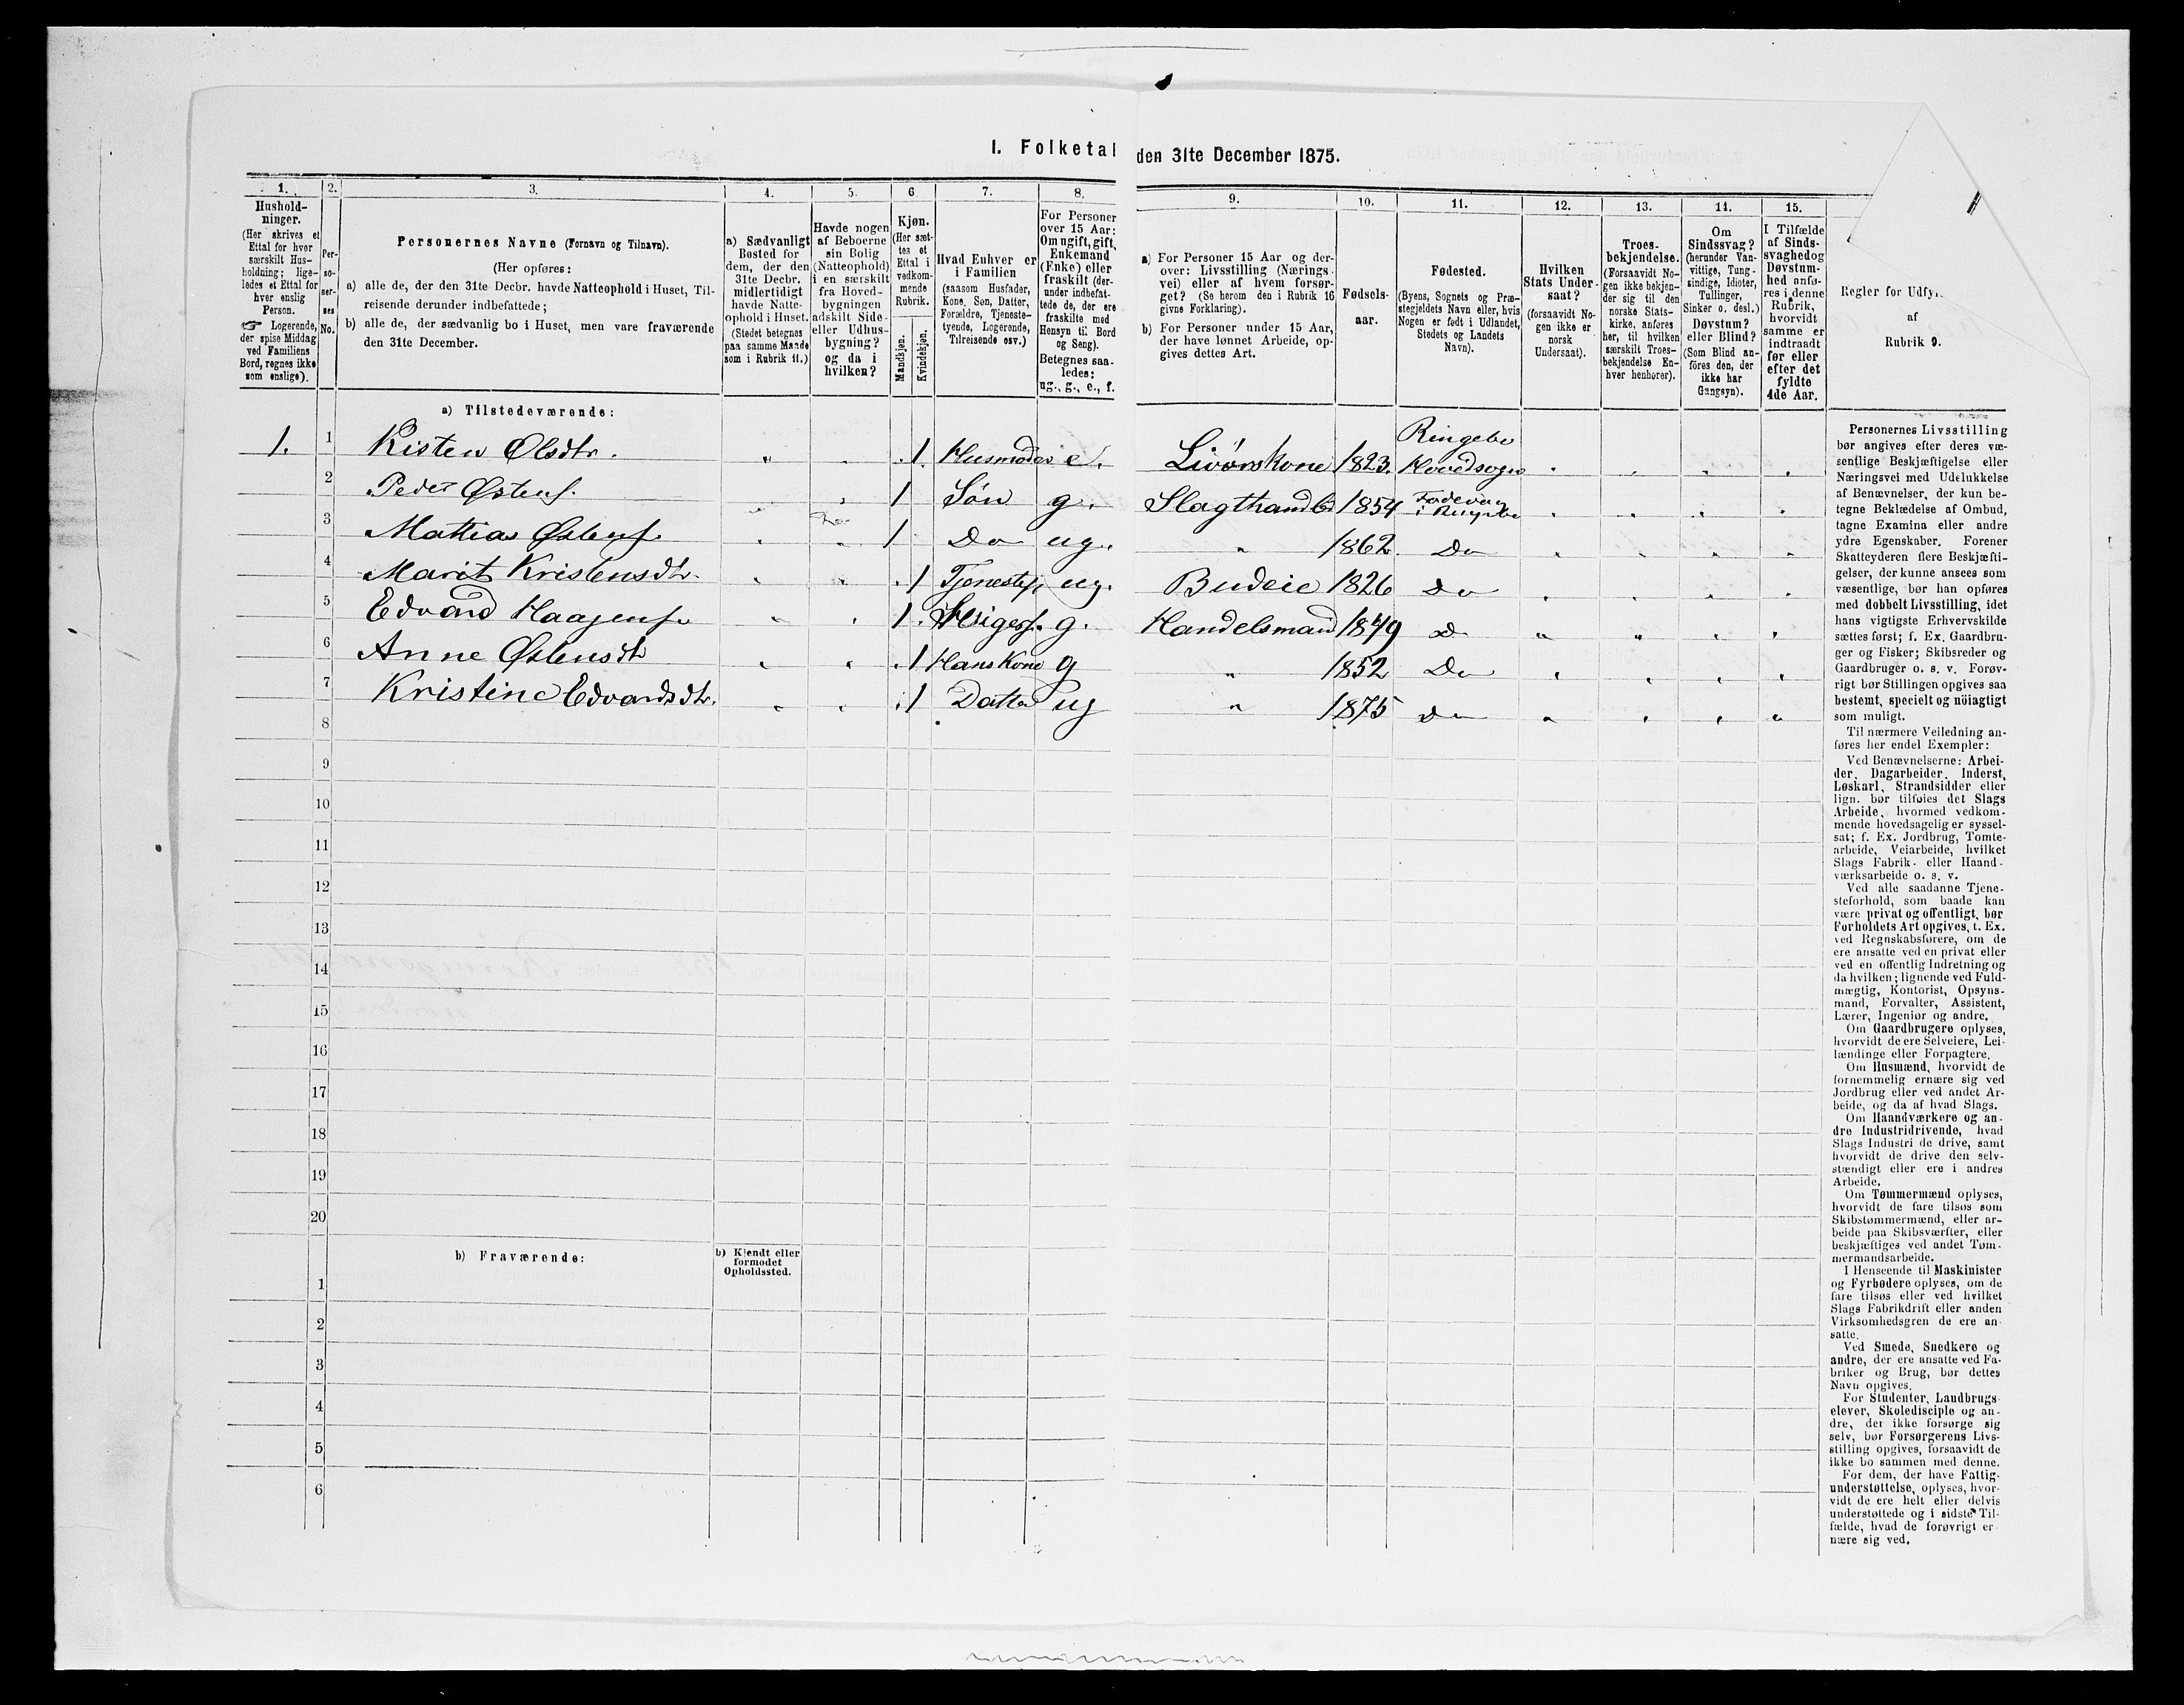 I. Folketal den 31te December 1875.
1. 2. 3. 4. 5. 6 7. 8. 9. 10. 11. 12. 13. 14. 15.
Hushold-
ninger.
(Her skrives et
Ettal for hver
særskilt Hus-
holdning; lige-
ledes et Ettal for
hver enslig
Person.
☞ Logerende,
der spise Middag
ved Familiens
Bord, regnes ikke
som enslige).
Per-
so-
ner-
nes
No.
Personernes Navne (Fornavn og Tilnavn).
(Her opføres:
a) alle de, der den 31te Decbr. havde Natteophold i Huset, Til-
reisende derunder indbefattede;
b) alle de, der sædvanlig bo i Huset, men vare fraværende
den 31te December.
a) Sædvanligt
Bosted for
dem, der den
31te Decbr.
midlertidigt
havde Natte-
ophold i Huset.
(Stedet betegnes
paa samme Maade
som i Rubrik 11.)
Havde nogen
af Beboerne
sin Bolig
(Natteophold)
i en særskilt
fra Hoved-
bygningen
adskilt Side-
eller Udhus-
bygning?
og da i
hvilken?
Kjøn.
(Her sæt-
tes et
Ettal i
vedkom-
mende
Rubrik.
Mandkjøn.
Kvindekjøn.
Hvad Enhver er
i Familien
(saasom Husfader,
Kone, Søn, Datter,
Forældre, Tjeneste-
tyende, Logerende,
Tilreisende osv.)
For Personer
over 15 Aar:
Om ugift, gift,
Enkemand
(Enke) eller
fraskilt (der-
under indbefat-
tede de, der ere
fraskilte med
Hensyn til Bord
og Seng).
Betegnes saa-
ledes:
ug., g., e., f.
a) For Personer 15 Aar og der-
over: Livsstilling (Nærings-
vei) eller af hvem forsør-
get? (Se herom den i Rubrik 16
givne Forklaring).
b) For Personer under 15 Aar,
der have lønnet Arbeide, op-
gives dettes Art.
Fødsels-
aar.
Fødested.
(Byens, Sognets og Præ-
stegjeldets Navn eller, hvis
Nogen er født i Udlandet,
Stedets og Landets
Navn).
Hvilken
Stats Under-
saat?
(forsaavidt No-
gen ikke er
norsk
Undersaat).
Troes-
bekjendelse.
(Forsaavidt No-
gen ikke bekjen-
der sig til den
norske Stats-
kirke, anføres
her, til hvilken
særskilt Troes-
bekjendelse En-
hver henhører).
Om
Sindssvag?
(herunder Van-
vittige, Tung-
sindige, Idioter,
Tullinger,
Sinker o. desl.)
Døvstum?
eller Blind?
(Som Blind an-
föres den, der
ikke har
Gangsyn).
I Tilfælde
af Sinds-
svaghed og
Døvstum-
hed anfø-
res i denne
Rubrik,
hvorvidt
samme er
indtraadt
før eller
efter det
fyldte
4de Aar.
Regler for Udfyl
af
Rubrik 9.
a) Tilstedeværende:
1. 1 Kisten Olsdtr. 1 Husmoder e. Livørskone 1823. Ringebo Hovedsogn
2 Peder Østens. 1 Søn g. Slagthandler 1854 i Ringebo
3 Mattias Østens. 1 Do ug. 1862. Do
4 Marit Kristensdtr. 1 ug. Budeie 1826 Do
5 Edvard Haagens. 1 g. Handelsmand 1849 Do
6 Anne Østensdtr 1 Hans Kone g 1852 Do
7 Kristine Edvardsdtr. 1 Datter ug 1875 Do
8
9
10
11
12
13
14
15
16
17
18
19
20
b) Fraværende:
b) Kjendt eller
formodet
Opholdssted.
1
2
3
4
5
6
Personernes Livsstilling
bør angives efter deres væ-
sentlige Beskjæftigelse eller
Næringsvei med Udelukkelse
af Benævnelser, der kun be-
tegne Beklædelse af Ombud,
tagne Examina eller andre
ydre Egenskaber. Forener
Skatteyderen flere Beskjæfti-
gelser, der kunne ansees som
væsentlige, bør han opføres
med dobbelt Livsstilling, idet
hans vigtigste Erhvervskilde
sættes først; f. Ex. Gaardbru-
ger og Fisker; Skibsreder og
Gaardbruger o. s. v. Forøv-
rigt bør Stillingen opgives saa
bestemt, specielt og nöiagtigt
som muligt.
Til nærmere Veiledning an-
føres her endel Exempler:
Ved Benævnelserne: Arbei-
der, Dagarbeider, Inderst,
Løskarl, Strandsidder eller
lign. bør tilføies det Slags
Arbeide, hvormed vedkom-
mende hovedsagelig er syssel-
sat; f. Ex. Jordbrug, Tomte-
arbeide, Veiarbeide, hvilket
Slags Fabrik- eller Haand-
værksarbeide o. s. v.
Ved alle saadanne Tjene-
steforhold, som baade kan
være privat og offentligt, bør
Forholdets Art opgives, t. Ex.
ved Regnskabsførere, om de
ere ansatte ved en privat eller
ved en offentlig Indretning og
da hvilken; lignende ved Fuld-
mægtig, Kontorist, Opsyns-
mand, Forvalter, Assistent,
Lærer, Ingeniør og andre.
Om Gaardbrugere oplyses,
hvorvidt de ere Selveiere, Lei-
lændinge eller Forpagtere.
Om Husmænd, hvorvidt de
fornemmelig ernære sig ved
Jordbrug eller ved andet Ar-
beide, og da af hvad Slags.
Om Haandværkere og an-
dre Industridrivende, hvad
Slags Industri de drive, samt
hvorvidt de drive den selv-
stændigt eller ere i andres
Arbeide.
Om Tømmermænd oplyses,
hvorvidt de fare tilsøs som
Skibstømmermænd, eller ar-
beide paa Skibsværfter, eller
beskjæftiges ved andet Tøm-
mermandsarbeide.
I Henseende til Maskinister
og Fyrbødere oplyses, om de
fare tilsøs eller ved hvilket
Slags Fabrikdrift eller anden
Virksomhedsgren de ere an-
satte.
Ved Smede, Snedkere og
andre, der ere ansatte ved Fa-
briker og Brug, bør dettes
Navn opgives.
For Studenter, Landbrugs-
elever, Skoledisciple og an-
dre, der ikke forsørge sig
selv, bør Forsørgerens Livs-
stilling opgives, forsaavidt de
ikke bo sammen med denne.
For dem, der have Fattig-
understøttelse, oplyses, hvor-
vidt de ere helt eller delvis
understøttede og i sidste Til-
fælde, hvad de forøvrigt er-
nære sig ved.